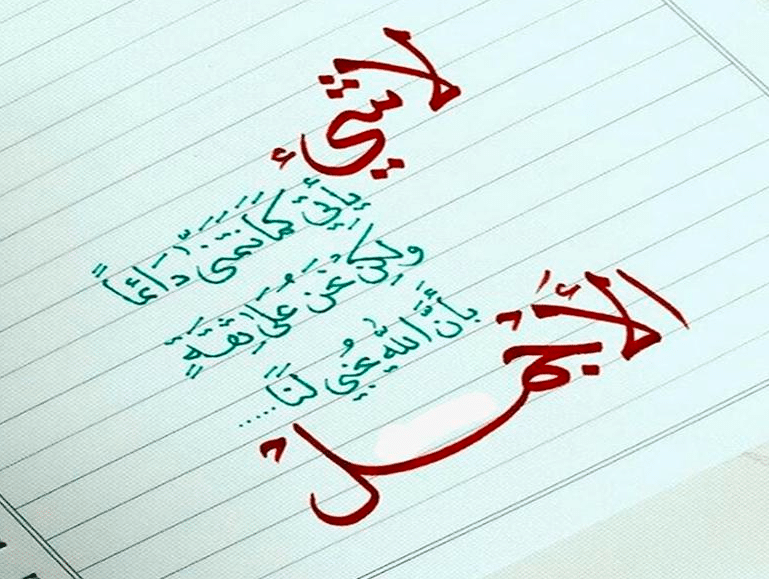 لا شيء
يأتي كما نتمنى دائمًا
ولكننا نحن على ثقةٍ
بأنَّ الله يخبئ لنا.....
الأجمل